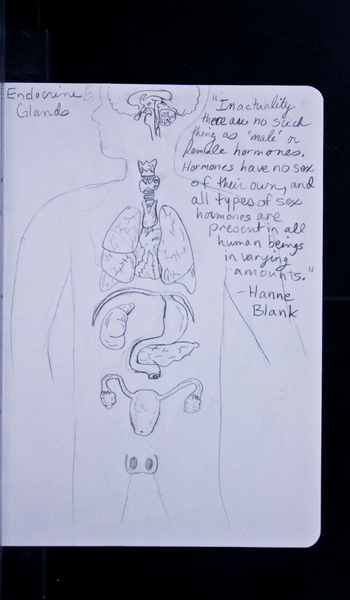 Endocrine
Glands
"Inactuality
there are no such
thing as 'male' or
female hormones.
Hormones have no sex
of their own, and
all types of sex
hormones are
present in all
human beings
in varying
amounts."
- Hanne
Blank